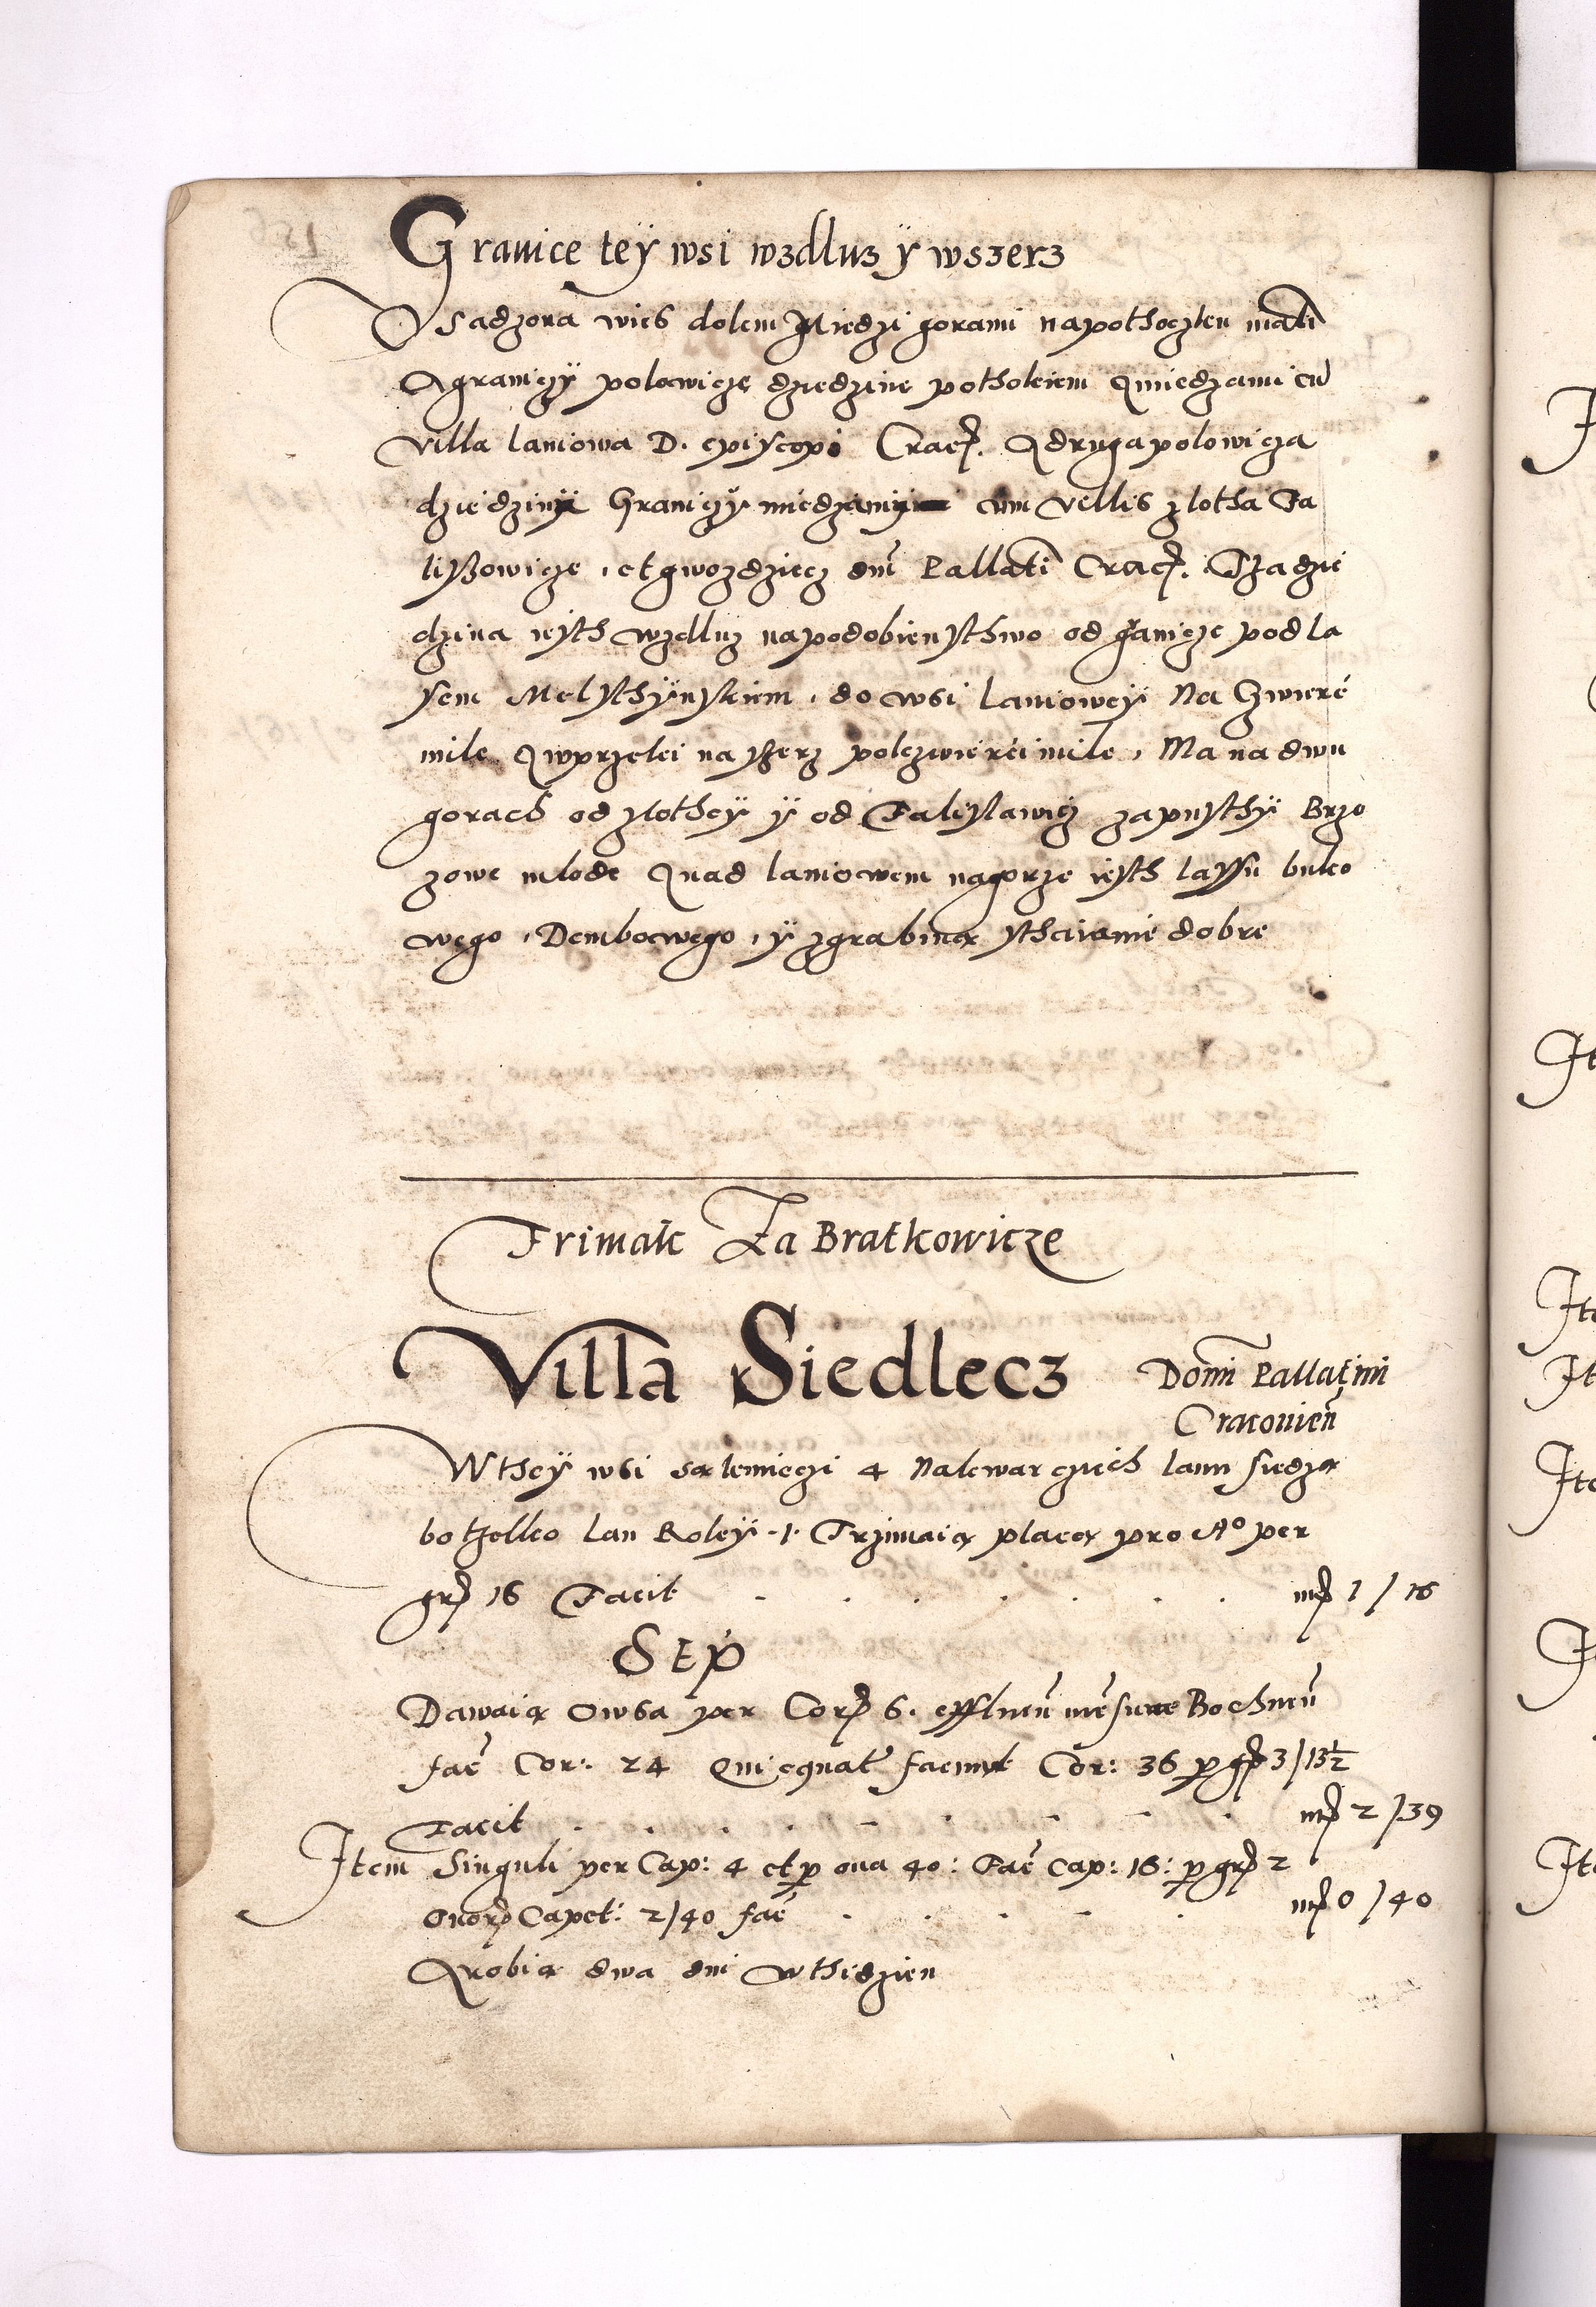 Granice teÿ wsi wzdluz ÿ wszerz
Osadzona wies dolem Miedzi gorami napothoczku mali
A graniczÿ polowicze dziedzine pothokiem A miedzami cu
villa laniowa D. episcopi Crac. A druga polowicza
dziedzinÿ Graniczÿ miedzami cum vellis zlotha Fa
lißowicze, et gwozdziecz dni Pallati Crac. Tha dzie
dzina iesth wzdluz napodobiensthwo od granicze pod la
sem Melsthÿnskiem, do wsi lanioweÿ Na Czwierc
mile A wprzeki na szerz polczwierci mile, Ma na dwu
gorach od zlotheÿ ÿ od Falislawicz zapusthÿ Brzo
zowe mlode A nad laniowem nagorze iesth lassu buko
wego, Dembowego, ÿ zgrabina sthaianie dobre
Frimark Za Bratkowicze
Villa Siedlecz Domi Pallatini
Cracovien
W theÿ wsi sa kmieczi 4 Nalcwar czich lanu siedza
bo tzelko lan Roleÿ .1. Trzimaia placa pro Ao per
gr 16 Facit . . . . . . mr 1 / 16
SEP
Dawaia owsa per Cor 6. mesure Bochnen
fac Cor: 24 Qui equat faciunt Cor: 36 p gr 3/13½
Facit . . . . . . . . mr 2 / 39
Item Singuli per Cap: 4 et p oua 40: Fac Cap: 16: p gr 2
Ouor Capet: 2/40 fac . . . . . mr 0 / 40
A robia dwa dni w thidzien